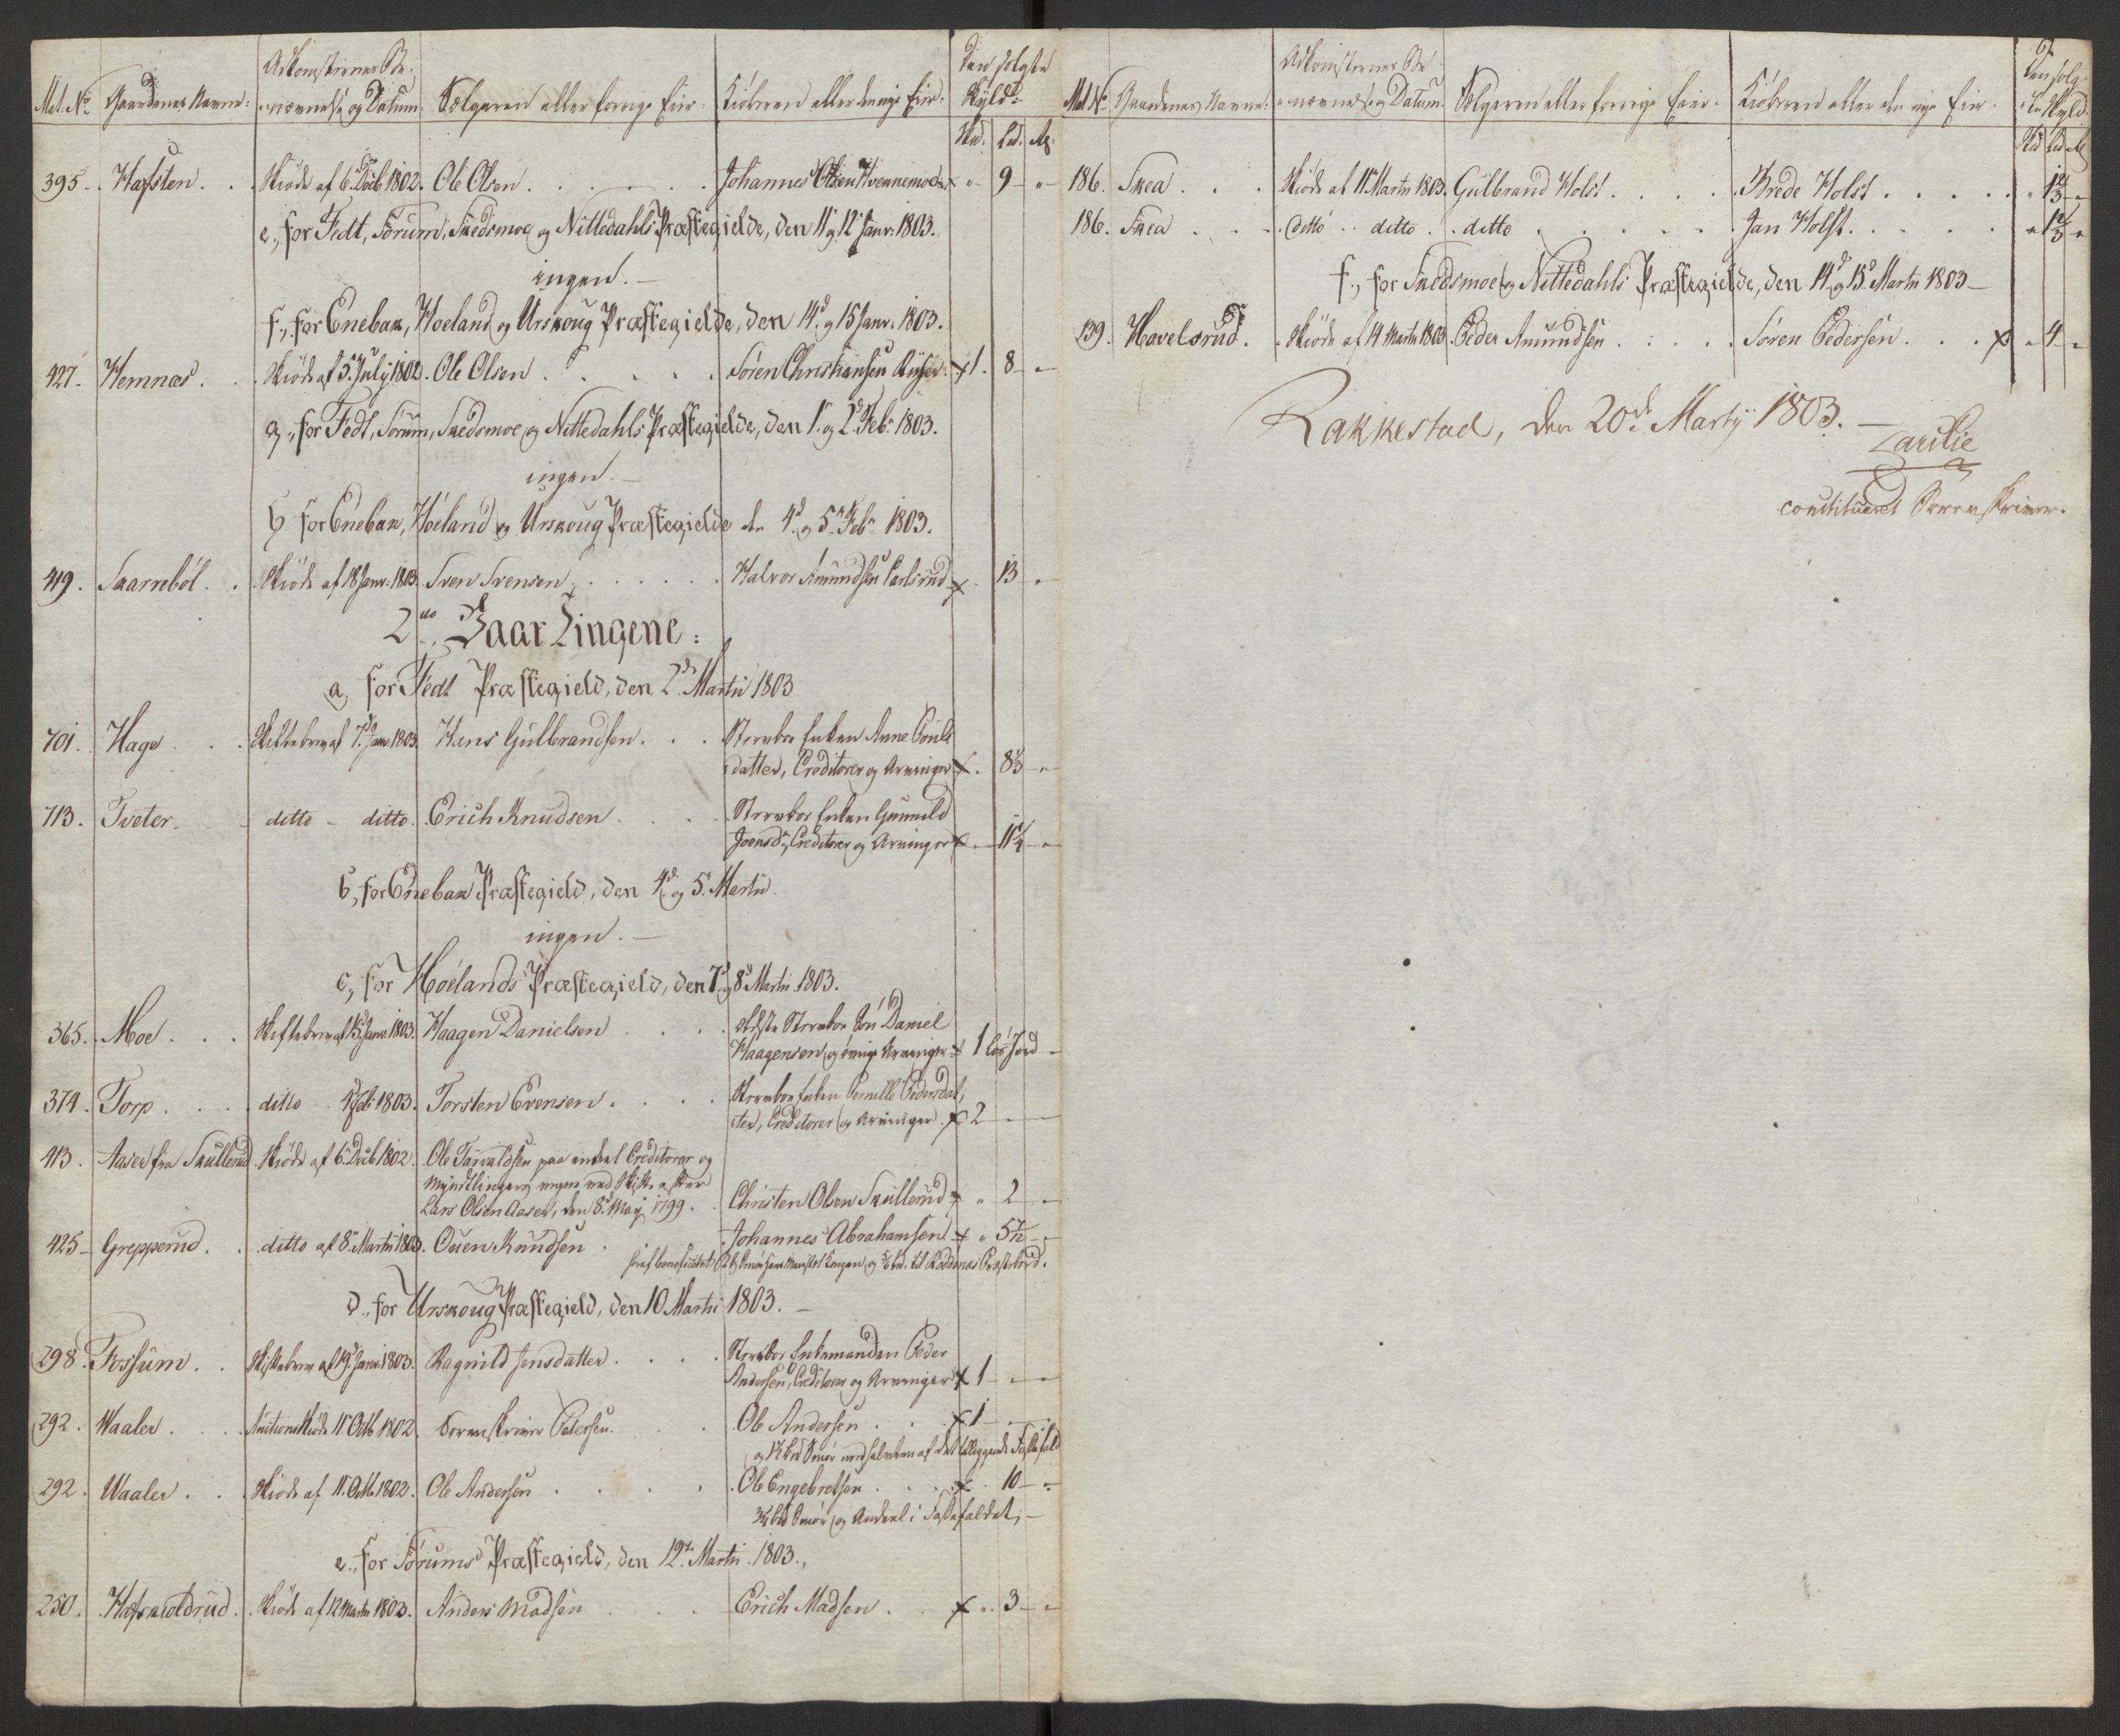 Mat. No. Gaardenes Navne: Adkomsternes Be- nævnelse og Datum Sælgeren eller forrige Eier: Kiöberen eller den nye Eier: Den solgte Skyld:
Hd: Ld. Mk.
395. Hafsten. Skiöde af 6. Decb 1802. Ole Olsen Johannes Olsen Kvennemoe × " 9 "
e., for Fedt, Sørum, Skedsmoe og Nittedahls Præstegielde, den 11 og 12 Janr: 1803.
ingen. —
f., for Enebak, Høeland og Urskoug Præstegielde, den 14d og 15 Janr: 1803.
427. Hemnæs. Skiöde af 5. July 1802. Ole Olsen Søren Christiansen × 1. 8 "
g., for Fedt, Sørum, Skedsmoe og Nittedahls Præstegielde, den 1. og 2. Feb. 1803.
ingen. —
h, for Enebak, Høeland og Urskoug Præstegielde d. 4d og 5. Feb. 1803.
419. Skarreböl. Skiöde af 18 Janr: 1803. Sven Svensen Halvor Amundsen × 13 "
2do. Vaar Tingene:
a, for Fedt Præstegield, den 2d Martii 1803
701. Hage Skiftebrev af 7. Janr 1803. Hans Gulbrandsen Stervboe Enken Anne Pouls
datter, Creditorer og Arvinger × 8⅓ "
713. Tveter. ditto - ditto. Erich Knudsen Stervboe Enken Gunnild
Joensd., Creditorer og Arvinger × 11¼ "
b, for Enebak Præstegield, den 4d og 5. Martii
ingen. —
c, for Høelands Præstegield, den 7 og 8d Martii 1803.
365. Moe. Skiftebrev af 15 Janr 1803. Haagen Danielsen ældste Stervboe Sön Daniel
Haagensen og övrige Arvinger × 1 lös Jord
374. Torp. ditto 4 Feb: 1803. Torsten Evensen. Stervboe Enken Pernille Pedersdat-
ter, Creditorer og Arvinger. × 2
413. Aaser fra Skullerud Skiöde af 6. Decb 1802. Ole Tarraldsen paa endeel Creditorer og
Myndtlingers vegne ved Skifte efter
Lars Olsen Aaser, den 8. May 1799. Christen Olsen Skullerud × " 2 "
425. Grepperud. ditto af 8. Martii 1803. Ouen Knudsen Johannes Abrahamsen × " 5½ "
d., for Urskoug Præstegield, den 10 Martii 1803. —
298. Fossum. Skiftebrev af 19 Janr: 1803. Ragnild Jensdatter. Stervboe Enkemanden Peder
Andersen, Creditorer og Arvinger × 1
292. Waaler. Auctionsskiöde 11 Octb 1802. Sorenskriver Petersen. Ole Andersen × 1
og 1½ Smör med halvdelen af det tilliggende
292. Waaler. Skiöde af 11. Octb 1802. Ole Andersen Ole Engebretsen × 10 "
Smör og Andeel i
e., for Sørums Præstegield, den 12te Martii 1803.,
250. Hafskoldrud. Skiöde af 12 Martii 1803. Anders Madsen Erich Madsen × " 3 "
Mat No. Gaardenes Navne: Adkomsternes Be- nævnelse og Datum. Sælgeren eller forrige Eier. Kiöberen eller den nye Eier. Den solg- te Skyld.
Hd Ld Mk
186. Skea Skiöde af 11 Martii 1803. Gulbrand Holst Brede Holst " 1⅔ "
186. Skea ditto ditto ditto Jan Holst. " 1⅔ "
f., for Skedsmoe og Nittedahls Præstegielde, den 14d og 15d Martii 1803 —
139. Havelsrud. Skiöde af 14 Martii 1803. Peder Amundsen Søren Pedersen × " 4 "
Rakkestad, den 20d Martij 1803. —
constitueret Sorenskriver.